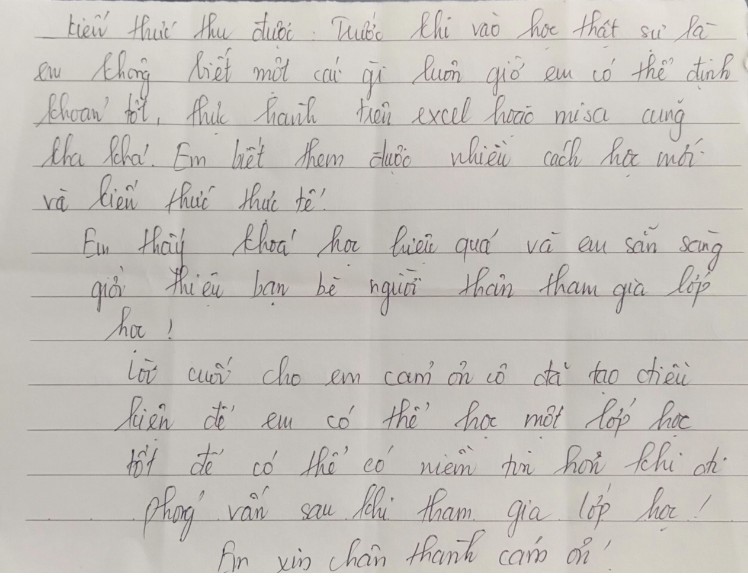 kiến thức thu được. Trước khi vào học thật sự là
em không biết một cái gì luôn giờ em có thể định
khoản tốt, thực hành trên excel hoặc misa cũng
kha khá. Em biết thêm được nhiều cách học mới
và kiến thức thực tế!
Em thấy khoá học tuyệt quá và em sẵn sàng
giới thiệu bạn bè người thân tham gia lớp
học!
Lời cuối cho em cảm ơn cô đã tạo điều
kiện để em có thể học một lớp học
tốt để có thể có niềm tin hơn khi đi
phỏng vấn sau khi tham gia lớp học!
Em xin chân thành cảm ơn!